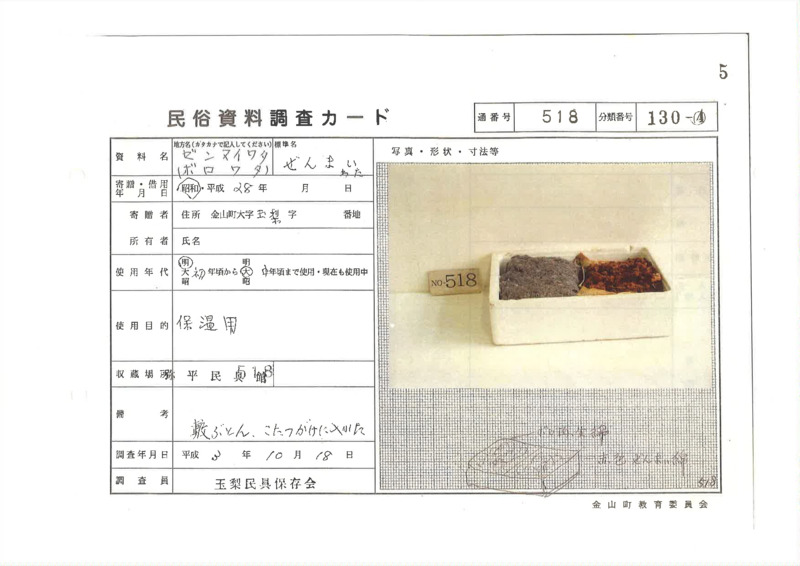 5
民俗資料調査カード
通番号 518 分類番号 130-④
資料名 地方名(カタカナで記入してください) ゼンマイワタ (ボロワタ) 標準名 ぜんまいわた
寄贈・借用年月日 昭和・平成 28年 月 日
寄贈者 住所 金山町大字玉梨字 番地
所有者 氏名
使用年代 明大昭 初年頃から 明大昭 年頃まで使用・現在も使用中
使用目的 保温用
収蔵場所 弥平民具館 518
備考 敷ぶとん、こたつがけに入れた
調査年月日 平成 3年 10月 18日
調査員 玉梨民具保存会
写真・形状・寸法等
NO-518
赤色ぜんまい綿
518
金山町教育委員会